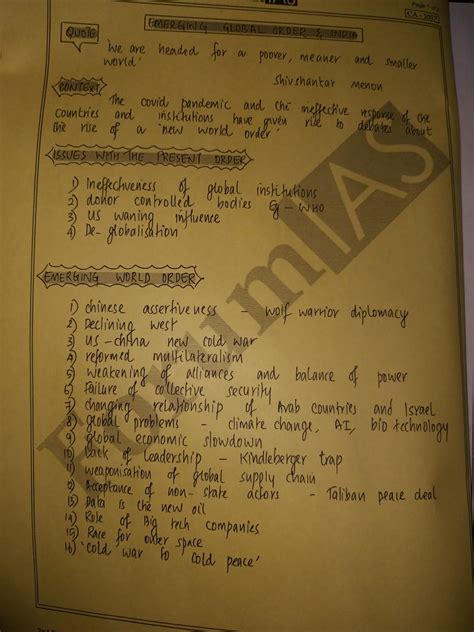 Page 1 of 2
EMERGING GLOBAL ORDER & INDIA
QUOTE
'We are headed for a poorer, meaner and smaller
world'
Shivshankar Menon
CONTEXT
The covid pandemic and the ineffective response of the
countries and institutions have given rise to debates about
the rise of a 'new world order'
ISSUES WITH THE PRESENT ORDER
1) Ineffectiveness of global institutions
2) donor controlled bodies Eg - WHO
3) US waning influence
4) De-globalisation
EMERGING WORLD ORDER
1) chinese assertiveness - wolf warrior diplomacy
2) Declining west
3) US-china new cold war
4) reformed multilateralism
5) weakening of alliances and balance of power
6) Failure of collective security
7) changing relationship of Arab countries and Israel
8) global problems - climate change, AI, bio technology
9) global economic slowdown
10) Lack of leadership - Kindleberger trap
11) weaponisation of global supply chain
12) Acceptance of non-state actors - Taliban peace deal
13) Data is the new oil
14) Role of Big tech companies
15) Race for outer space
16) 'Cold war to cold peace'
ForumIAS